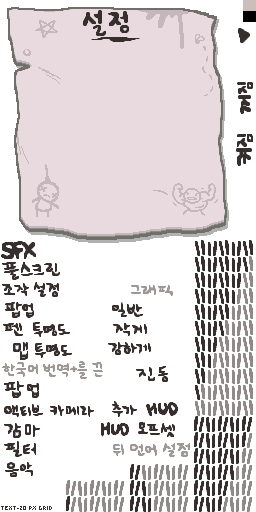 설정
켜짐
꺼짐
SFX
풀스크린
조작 설정
그래픽
팝업
일반
펜 투명도
작게
맵 투명도
강하게
한국어 번역+를 끈
진동
팝업
액티브 카메라
추가 HUD
감마
HUD 오프셋
필터
뒤 먼어 설정
음악
TEXT-20 PX GRID